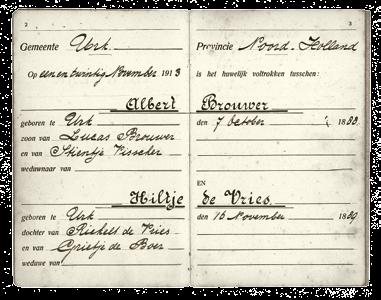 2
Gemeente Urk
Op een en twintig November 1913
Albert
geboren te Urk
zoon van Lucas Brouwer
en van Stientje Visscher
weduwnaar van
Hiltje
geboren te Urk
dochter van Riekelt de Vries
en van Grietje de Boer
weduwe van
3
Provincie Noord-Holland
is het huwelijk voltrokken tusschen:
Brouwer
den 7 October 18
EN
de Vries
den 15 November 18